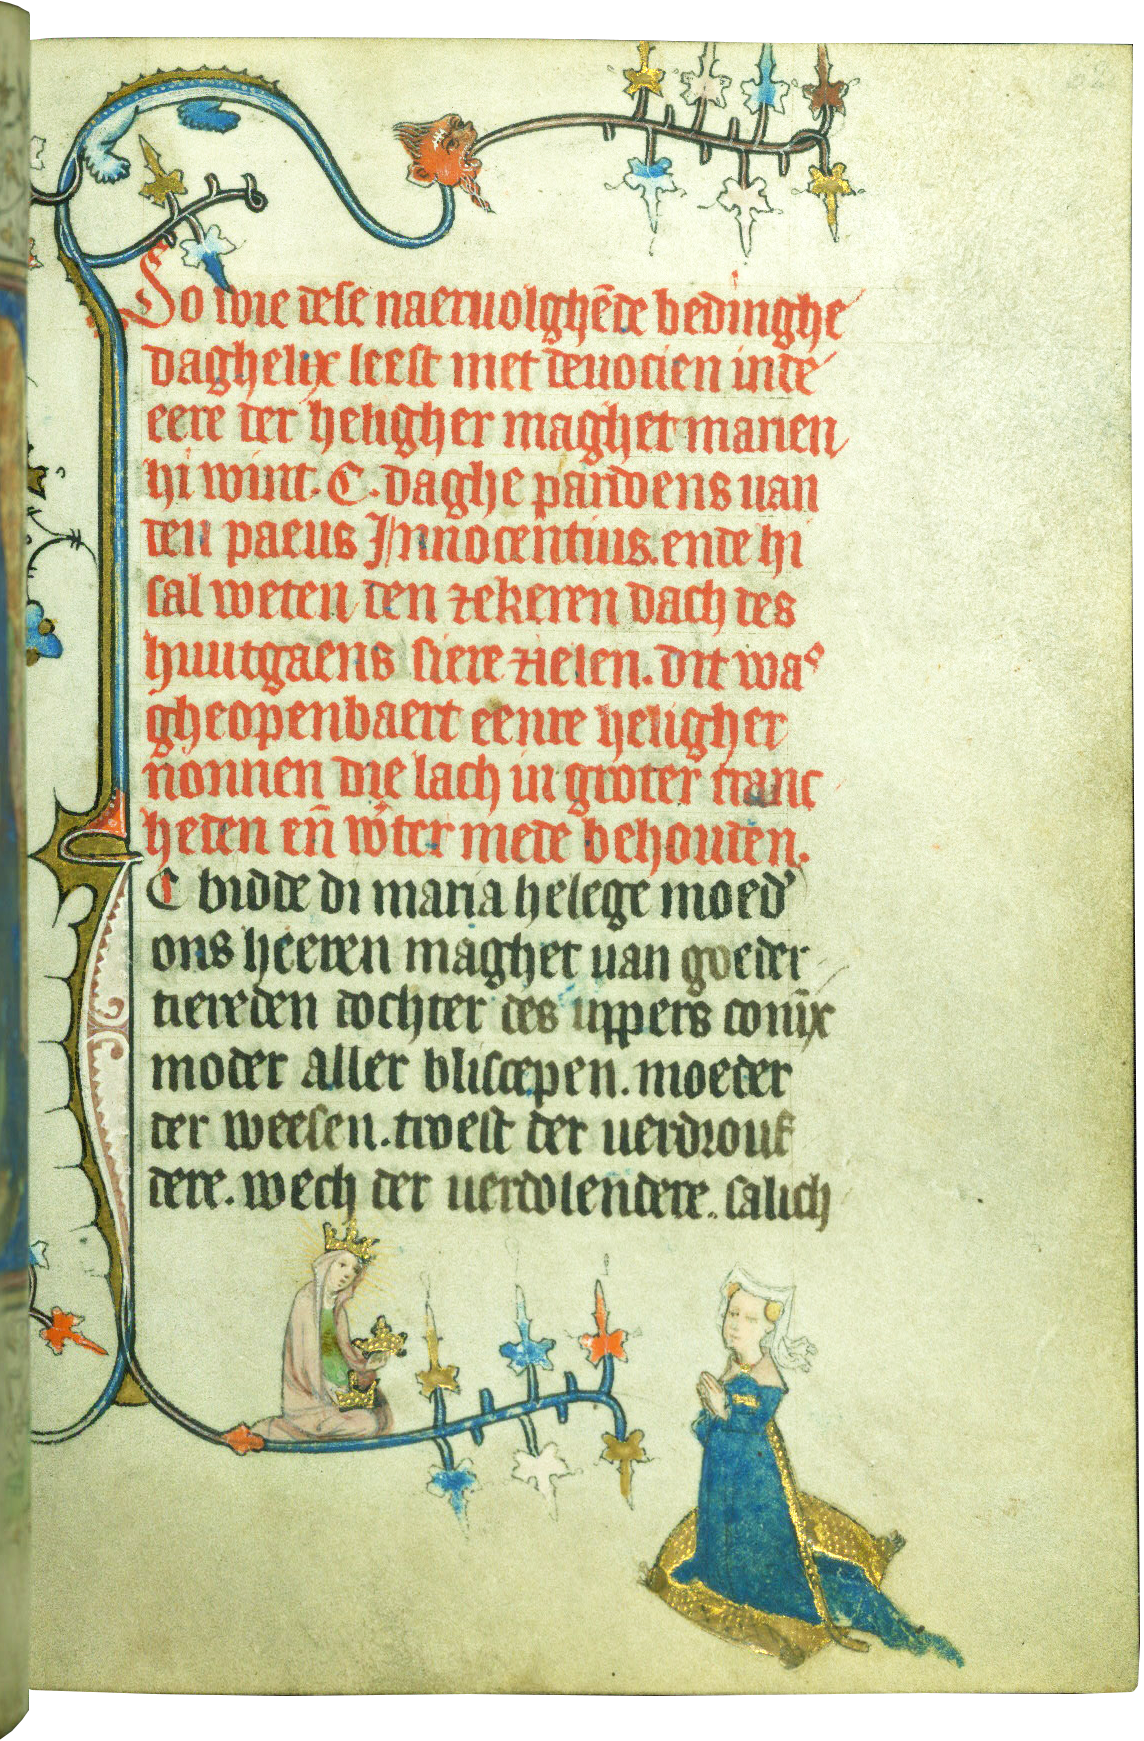 So wie dese naeruolghēde bedinghe
daghelix leest met deuocien in de
eere der heligher maghet marien
hi wint. C. daghe pardoens uan
den paeus Innocentius. ende hi
sal weten den zekeren dach des
huutgaens siere zielen. dit was
gheopenbaert eenre heligher
nonnen die lach in groter cranc
heden eñ wter mede behouden.
C bidde di maria helege moed'
ons heeren maghet uan goeder
tiereden dochter des uppers coninx
moder aller bliscepen. moeder
der weesen. troest der uerdrouf
dere. wech der uerdolendere. salich